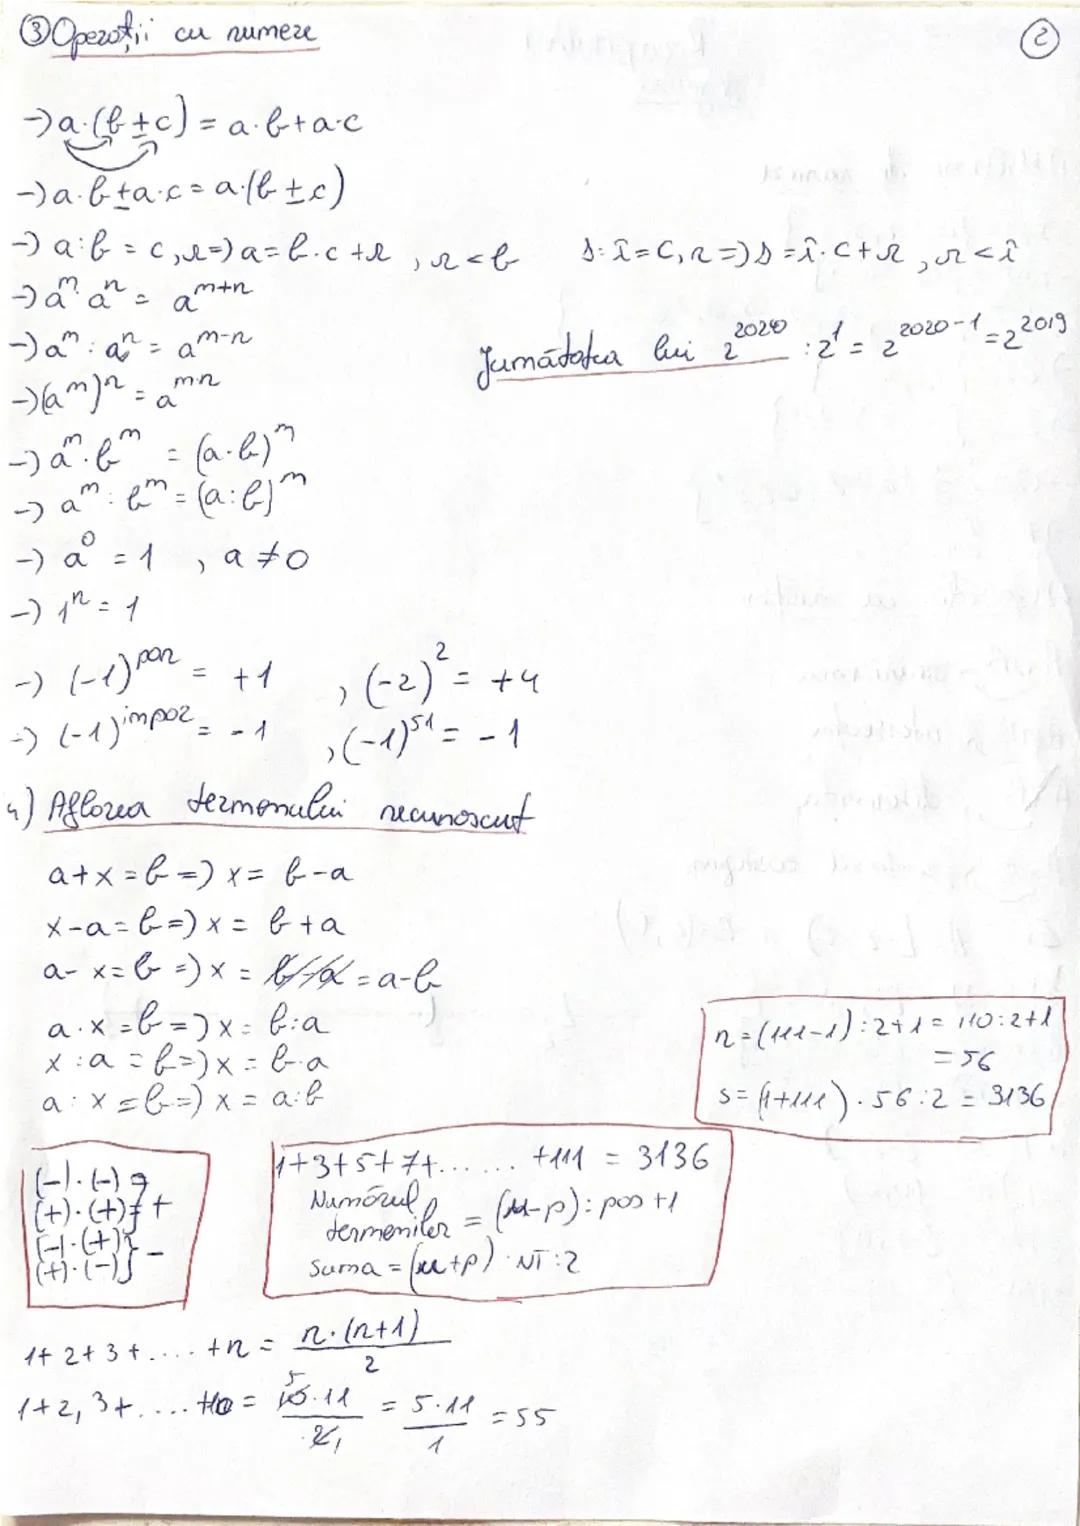 ③ Operații cu numere
②
-) a·(b±c) = a·b+a·c
-) a·b±a·c = a·(b±c)
-) a:b = c,r =) a=b·c+r , r<b
D:Î=C,R =) D=Î·C+R , R<Î
-) a^m·a^n = a^{m+n}
-) a^m:a^n = a^{m-n}
Jumătatea lui 2^{2020} :2^1 = 2^{2020-1} = 2^{2019}
-) (a^m)^n = a^{m·n}
-) a^m·b^m = (a·b)^m
-) a^m:b^m = (a:b)^m
-) a^0 = 1 , a≠0
-) 1^n = 1
-) (-1)^{par} = +1 , (-2)^2 = +4
-) (-1)^{impar} = -1 , (-1)^{51} = -1
4) Aflarea termenului necunoscut
a+x=b =) x= b-a
x-a=b =) x= b+a
a-x=b =) x= = a-b
a·x=b =) x= b:a
x:a=b =) x= b·a
a:x=b =) x= a:b
n=(111-1):2+1 = 110:2+1
=56
S=(1+111)·56:2 = 3136
(-)·(-)
(+)·(+) } +
(-)·(+)
(+)·(-) } -
1+3+5+7+...... +111 = 3136
Numărul
termenilor = (u-p):pas+1
Suma=(u+p)·NT:2
1+2+3+....+n = n·(n+1)/2
1+2,3+....+10 = 10·11/2 = 5·11/1 = 55